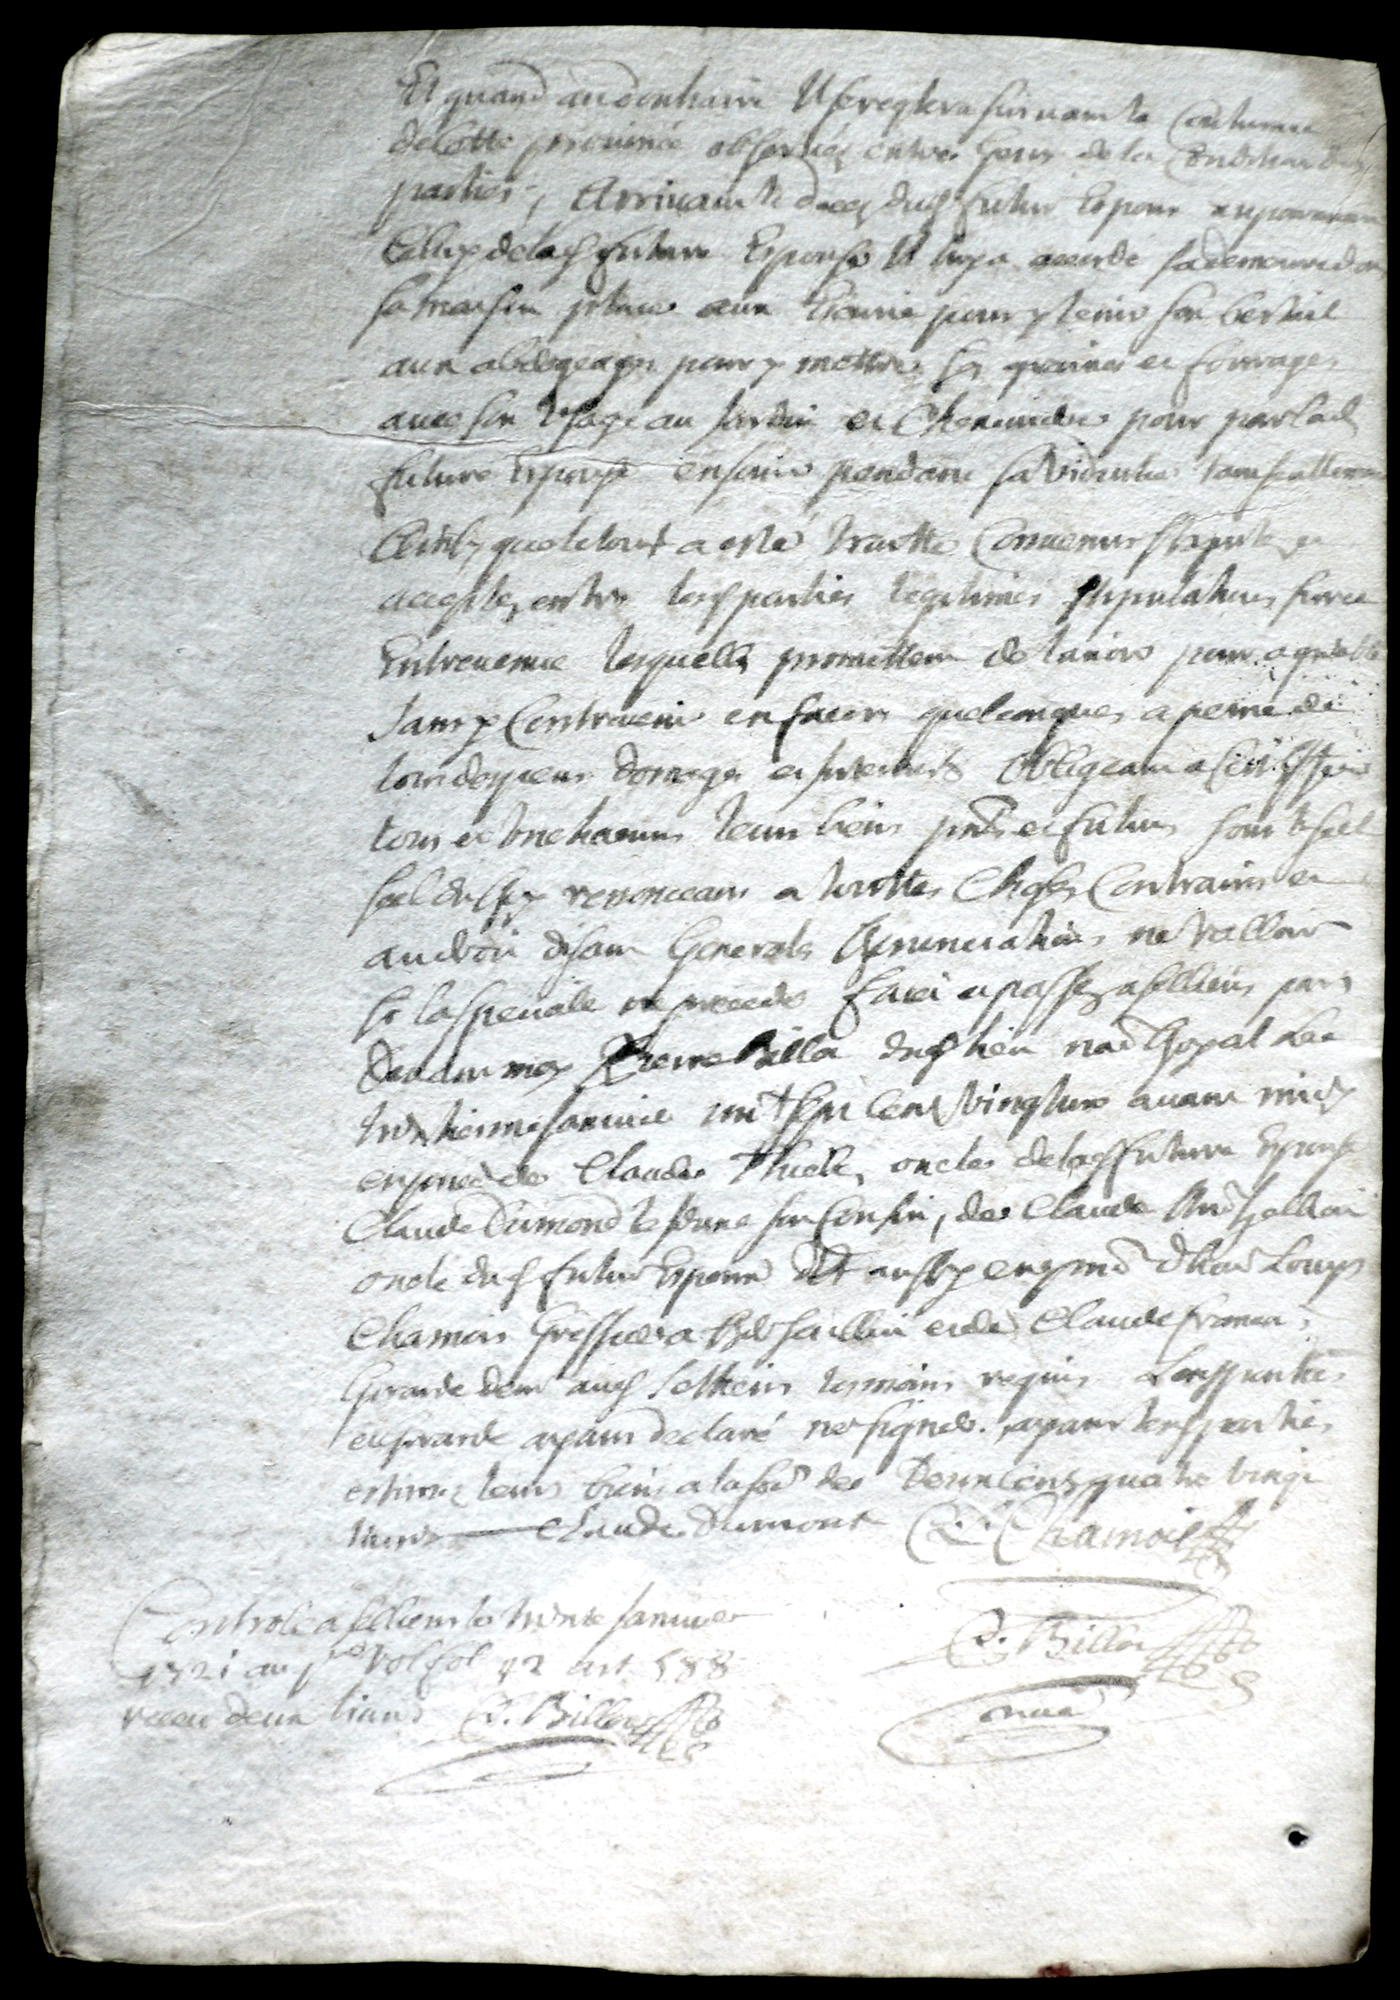 Et quand au douhaire Il se reglera suivant la Coutume
de Cette province observée entre gens de la Condition des
parties, Arrivant le deces dud futur Espoux auparavant
Celluy de lad future Espouse Il luy a acordé sa demeure dans
sa maison place aux Ecurie pour y tenir son bestail
aux pour y mettre ses graines et fourages
avec son Usage au Jardin et Cheneviere pour par lad
future Espouse en jouir pendant sa Viduité tant seullement
que le tout a esté traitté Convenus stipulé et
acceptez entre lesd parties legitimes stipulations sur ce
Entrevenue lesquelles promettent de tenir pour agreable
sans y Contrevenir en facon quelconques a peine de
tous despens domages et interests Obligeant a cet Effect
tous et Un chacuns leurs biens pnts et futurs sous le scel
scel du Roy renonceans a touttes Choses Contraires et
au droit disant Generale Renunciation ne valloir
si la speciale ne precede faict et passé a sellieres par
devant moy Pierre Billot dud lieu nore Royal Le
trentieme Janvier mil sept Cent Vingt un avant midy
en pnce de Claude oncles de lad future Espouse
Claude Dumond le Jeune son Cousin, de Claude
oncle dud futur Espoux et aussy en pnce d'hon Louys
Chamois Greffier a et de Claude francois
Girarde dem aud Sellieres tesmoins requis Lesd parties
et Girarde ayant declaré ne signer. ayant lesd parties
estimez leurs biens a la some de Deux Cent quatre vingt
livres — Claude Dumont C. L. Chamois
Controlé a sellieres le trente Janvier
1721 au pr Vol fol 42 art 588
receu deux livres P. Billot
P. Billot